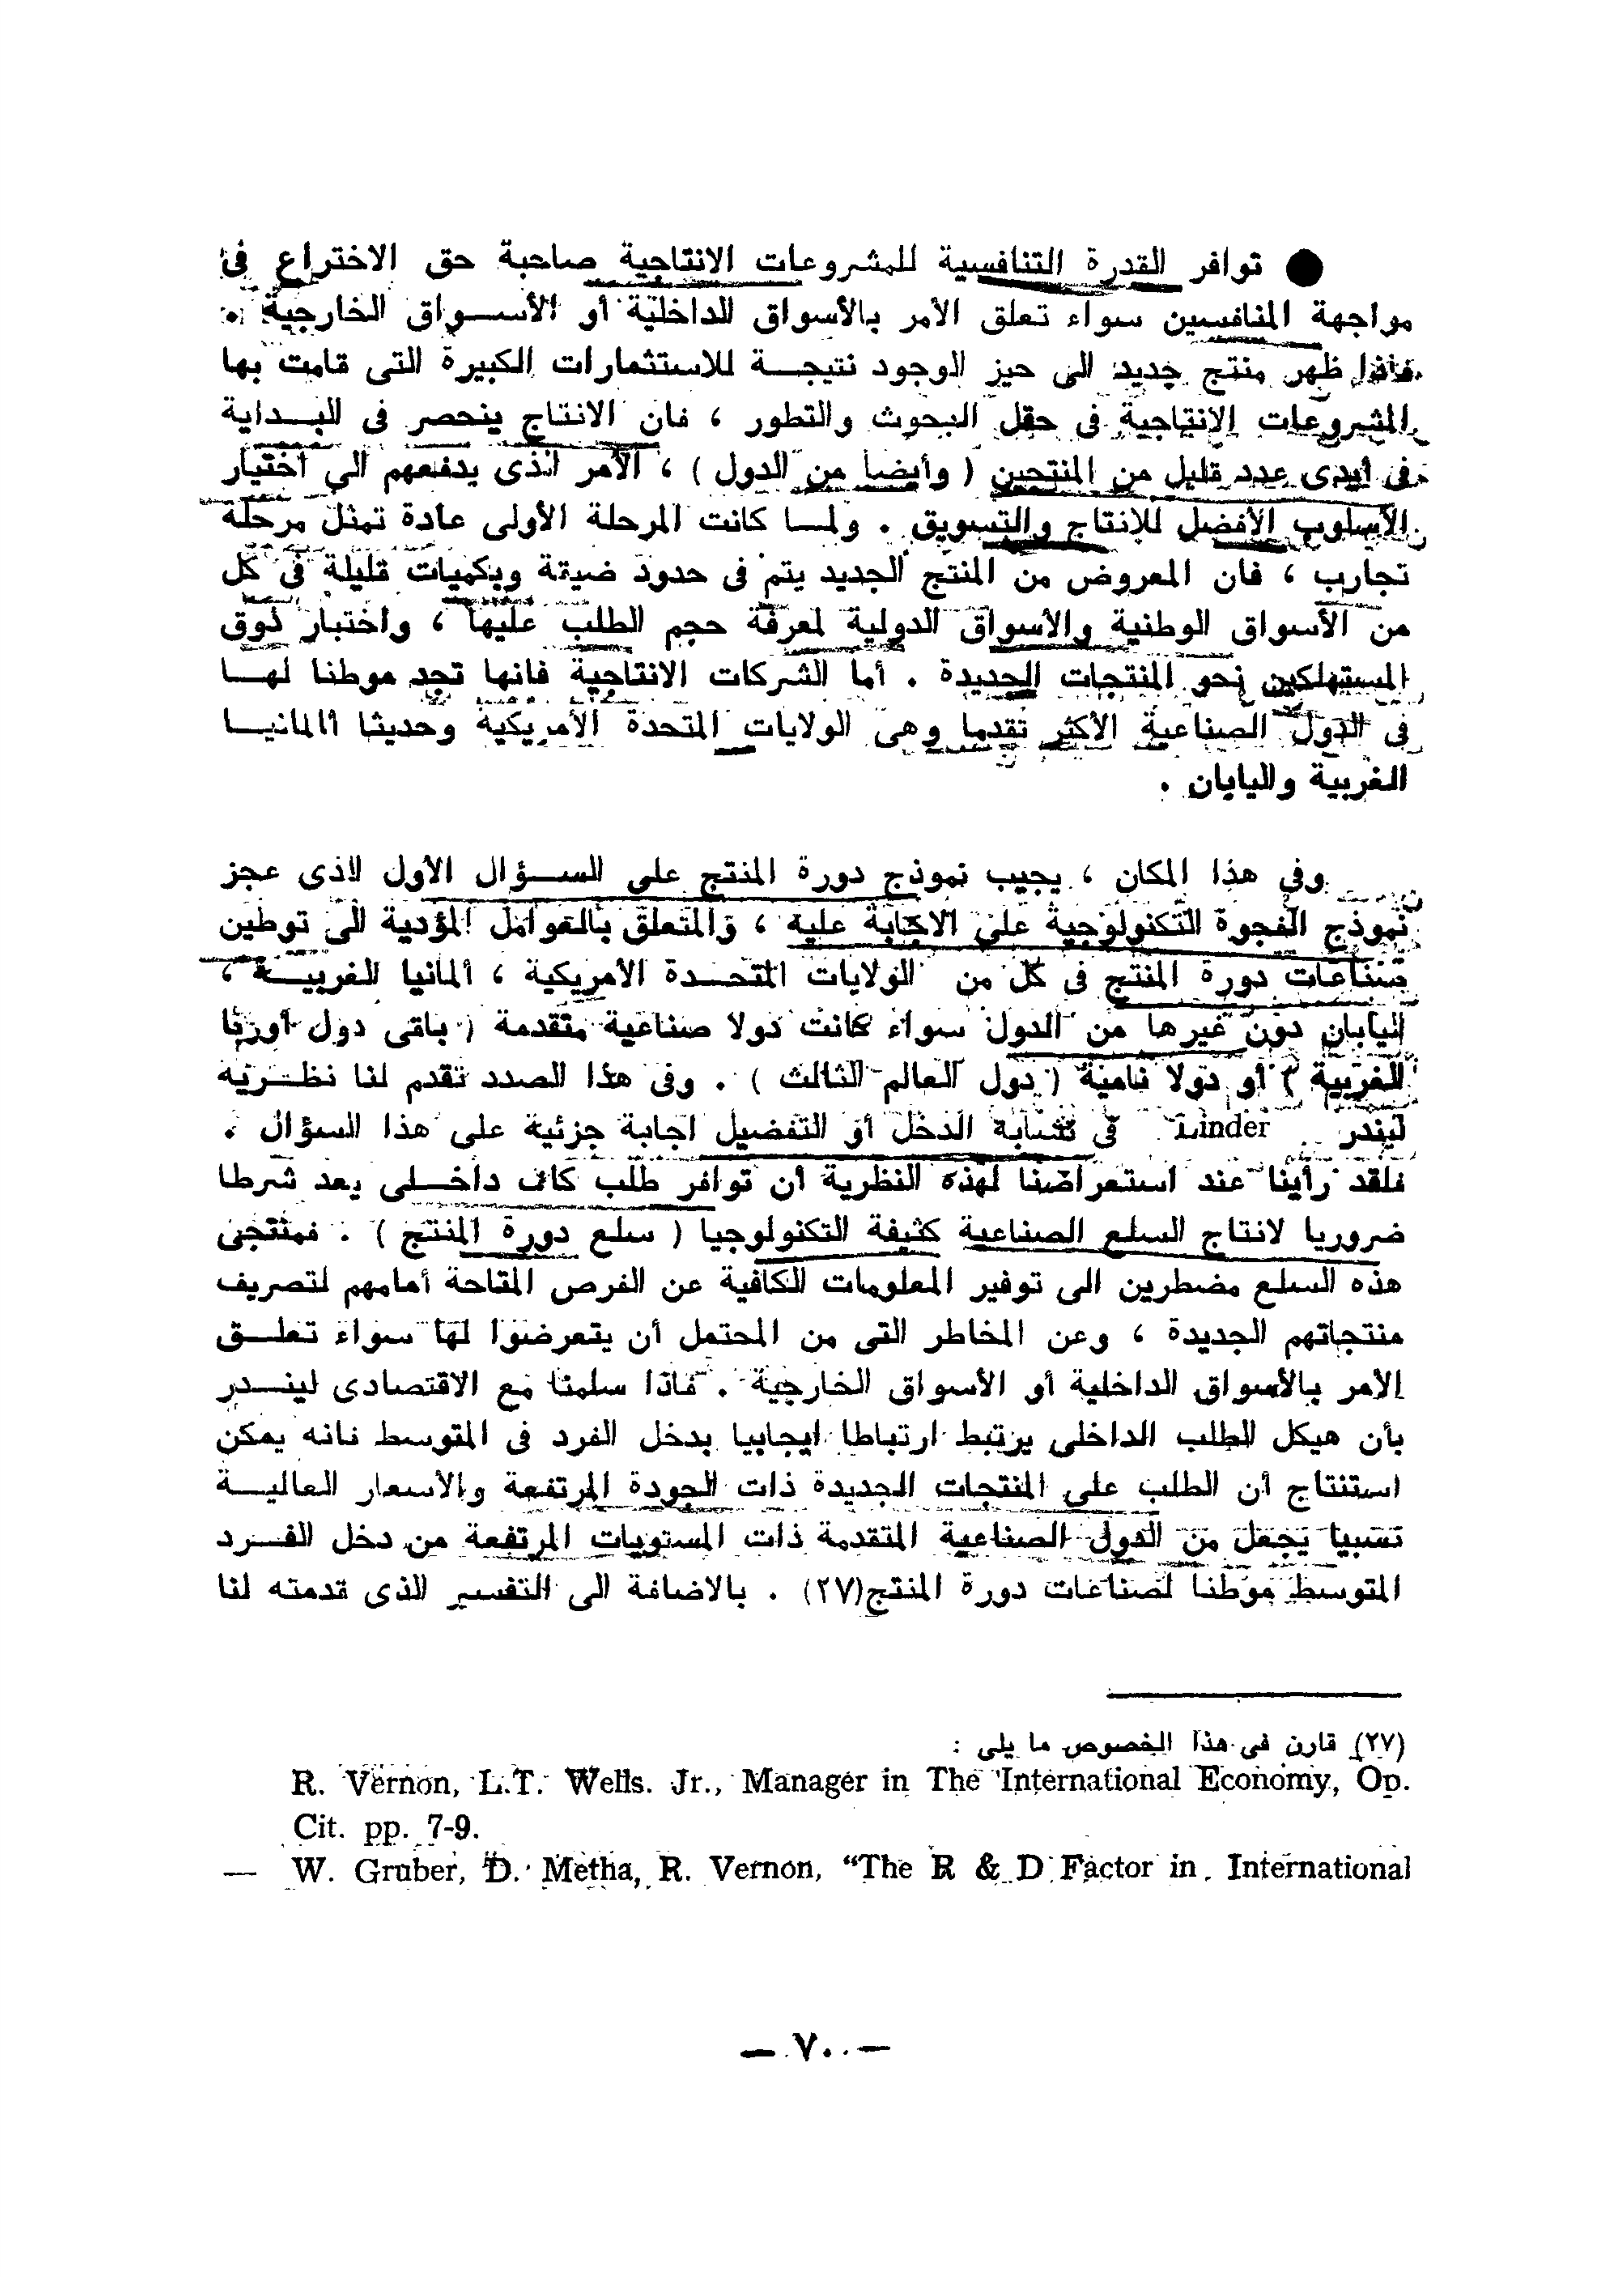 ● توافر القدرة التنافسية للمشروعات الانتاجية صاحبة حق الاختراع فى
مواجهة المنافسين سواء تعلق الأمر بالأسواق الداخلية أو الأسواق الخارجية .
فاذا ظهر منتج جديد الى حيز الوجود نتيجة للاستثمارات الكبيرة التى قامت بها
المشروعات الانتاجية فى حقل البحوث والتطور ، فان الانتاج ينحصر فى البداية
فى أيدى عدد قليل من المنتجين ( وأيضا من الدول ) ، الأمر الذى يدفعهم الى اختيار
الأسلوب الأفضل للانتاج والتسويق . ولما كانت المرحلة الأولى عادة تمثل مرحلة
تجارب ، فان المعروض من المنتج الجديد يتم فى حدود ضيقة وبكميات قليلة فى كل
من الأسواق الوطنية والأسواق الدولية لمعرفة حجم الطلب عليها ، واختبار ذوق
المستهلكين نحو المنتجات الجديدة . أما الشركات الانتاجية فانها تجد موطنا لها
فى الدول الصناعية الأكثر تقدما وهى الولايات المتحدة الأمريكية وحديثا االمانيا
الغربية واليابان .
وفى هذا المكان ، يجيب نموذج دورة المنتج على السؤال الأول الذى عجز
نموذج الفجوة التكنولوجية على الاجابة عليه ، والمتعلق بالعوامل المؤدية الى توطين
صناعات دورة المنتج فى كل من الولايات المتحدة الأمريكية ، ألمانيا الغربية ،
اليابان دون غيرها من الدول سواء كانت دولا صناعية متقدمة ( باقى دول أوربا
الغربية ) أو دولا نامية ( دول العالم الثالث ) . وفى هذا الصدد تقدم لنا نظرية
ليندر Linder فى تشابة الدخل أو التفضيل اجابة جزئية على هذا السؤال .
فلقد رأينا عند استعراضنا لهذه النظرية أن توافر طلب كاف داخلى يعد شرطا
ضروريا لانتاج السلع الصناعية كثيفة التكنولوجيا ( سلع دورة المنتج ) . فمنتجى
هذه السلع مضطرين الى توفير المعلومات الكافية عن الفرص المتاحة أمامهم لتصريف
منتجاتهم الجديدة ، وعن المخاطر التى من المحتمل أن يتعرضوا لها سواء تعلق
الأمر بالأسواق الداخلية أو الأسواق الخارجية . فاذا سلمنا مع الاقتصادى ليندر
بأن هيكل الطلب الداخلى يرتبط ارتباطا ايجابيا بدخل الفرد فى المتوسط فانه يمكن
استنتاج أن الطلب على المنتجات الجديدة ذات الجودة المرتفعة والأسعار العالية
نسبيا يجعل من الدول الصناعية المتقدمة ذات المستويات المرتفعة من دخل الفرد
المتوسط موطنا لصناعات دورة المنتج(٢٧) . بالاضافة الى التفسير الذى قدمته لنا
(٢٧) قارن فى هذا الخصوص ما يلى :
R. Vernon, L.T. Wells. Jr., Manager in The International Economy, Op.
Cit. pp. 7-9.
— W. Gruber, D. Metha, R. Vernon, "The R & D Factor in International
— ٧٠ —